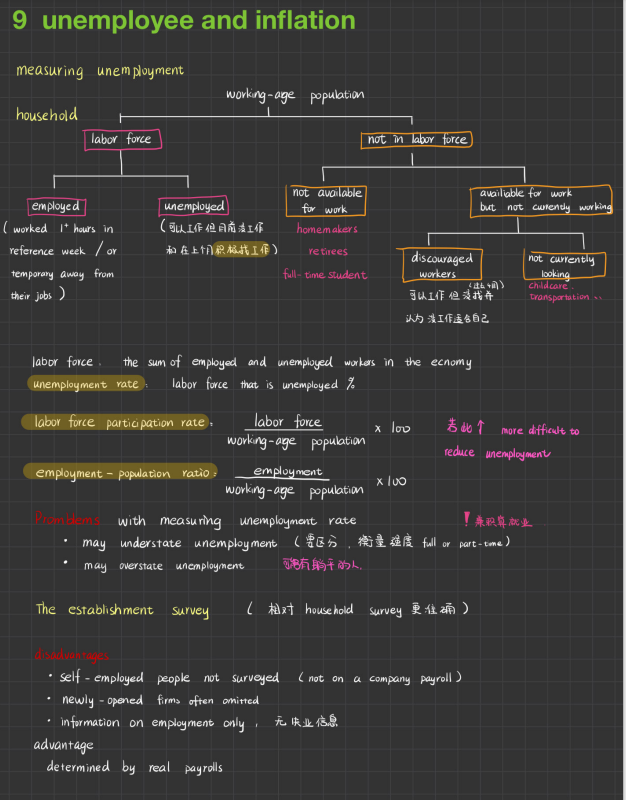 9 unemployee and inflation
measuring unemployment
working-age population
household
labor force
not in labor force
employed
unemployed
not available
for work
available for work
but not currently working
( worked 1+ hours in
reference week / or
temporary away from
their jobs )
(可以工作但目前没工作
和在上个月积极找工作)
homemakers
retirees
full-time student
discouraged
workers
可以工作但没找并
认为没工作适合自己
not currently
looking
childcare,
transportation ..
labor force . the sum of employed and unemployed workers in the ecnomy
unemployment rate: labor force that is unemployed %
labor force participation rate: labor force
working-age population
x 100
若此↑ more difficult to
reduce unemployment
employment - population ratio: employment
working-age population
x100
with measuring unemployment rate
! 兼职算就业
• may understate unemployment (需区分, 衡量强度 full or part-time)
• may overstate unemployment
The establishment survey ( 相对 household survey 更准确 )
disadvantages
• self - employed people not surveyed ( not on a company payroll )
• newly - opened firms often omitted
• information on employment only , 无失业信息
advantage
determined by real payrolls